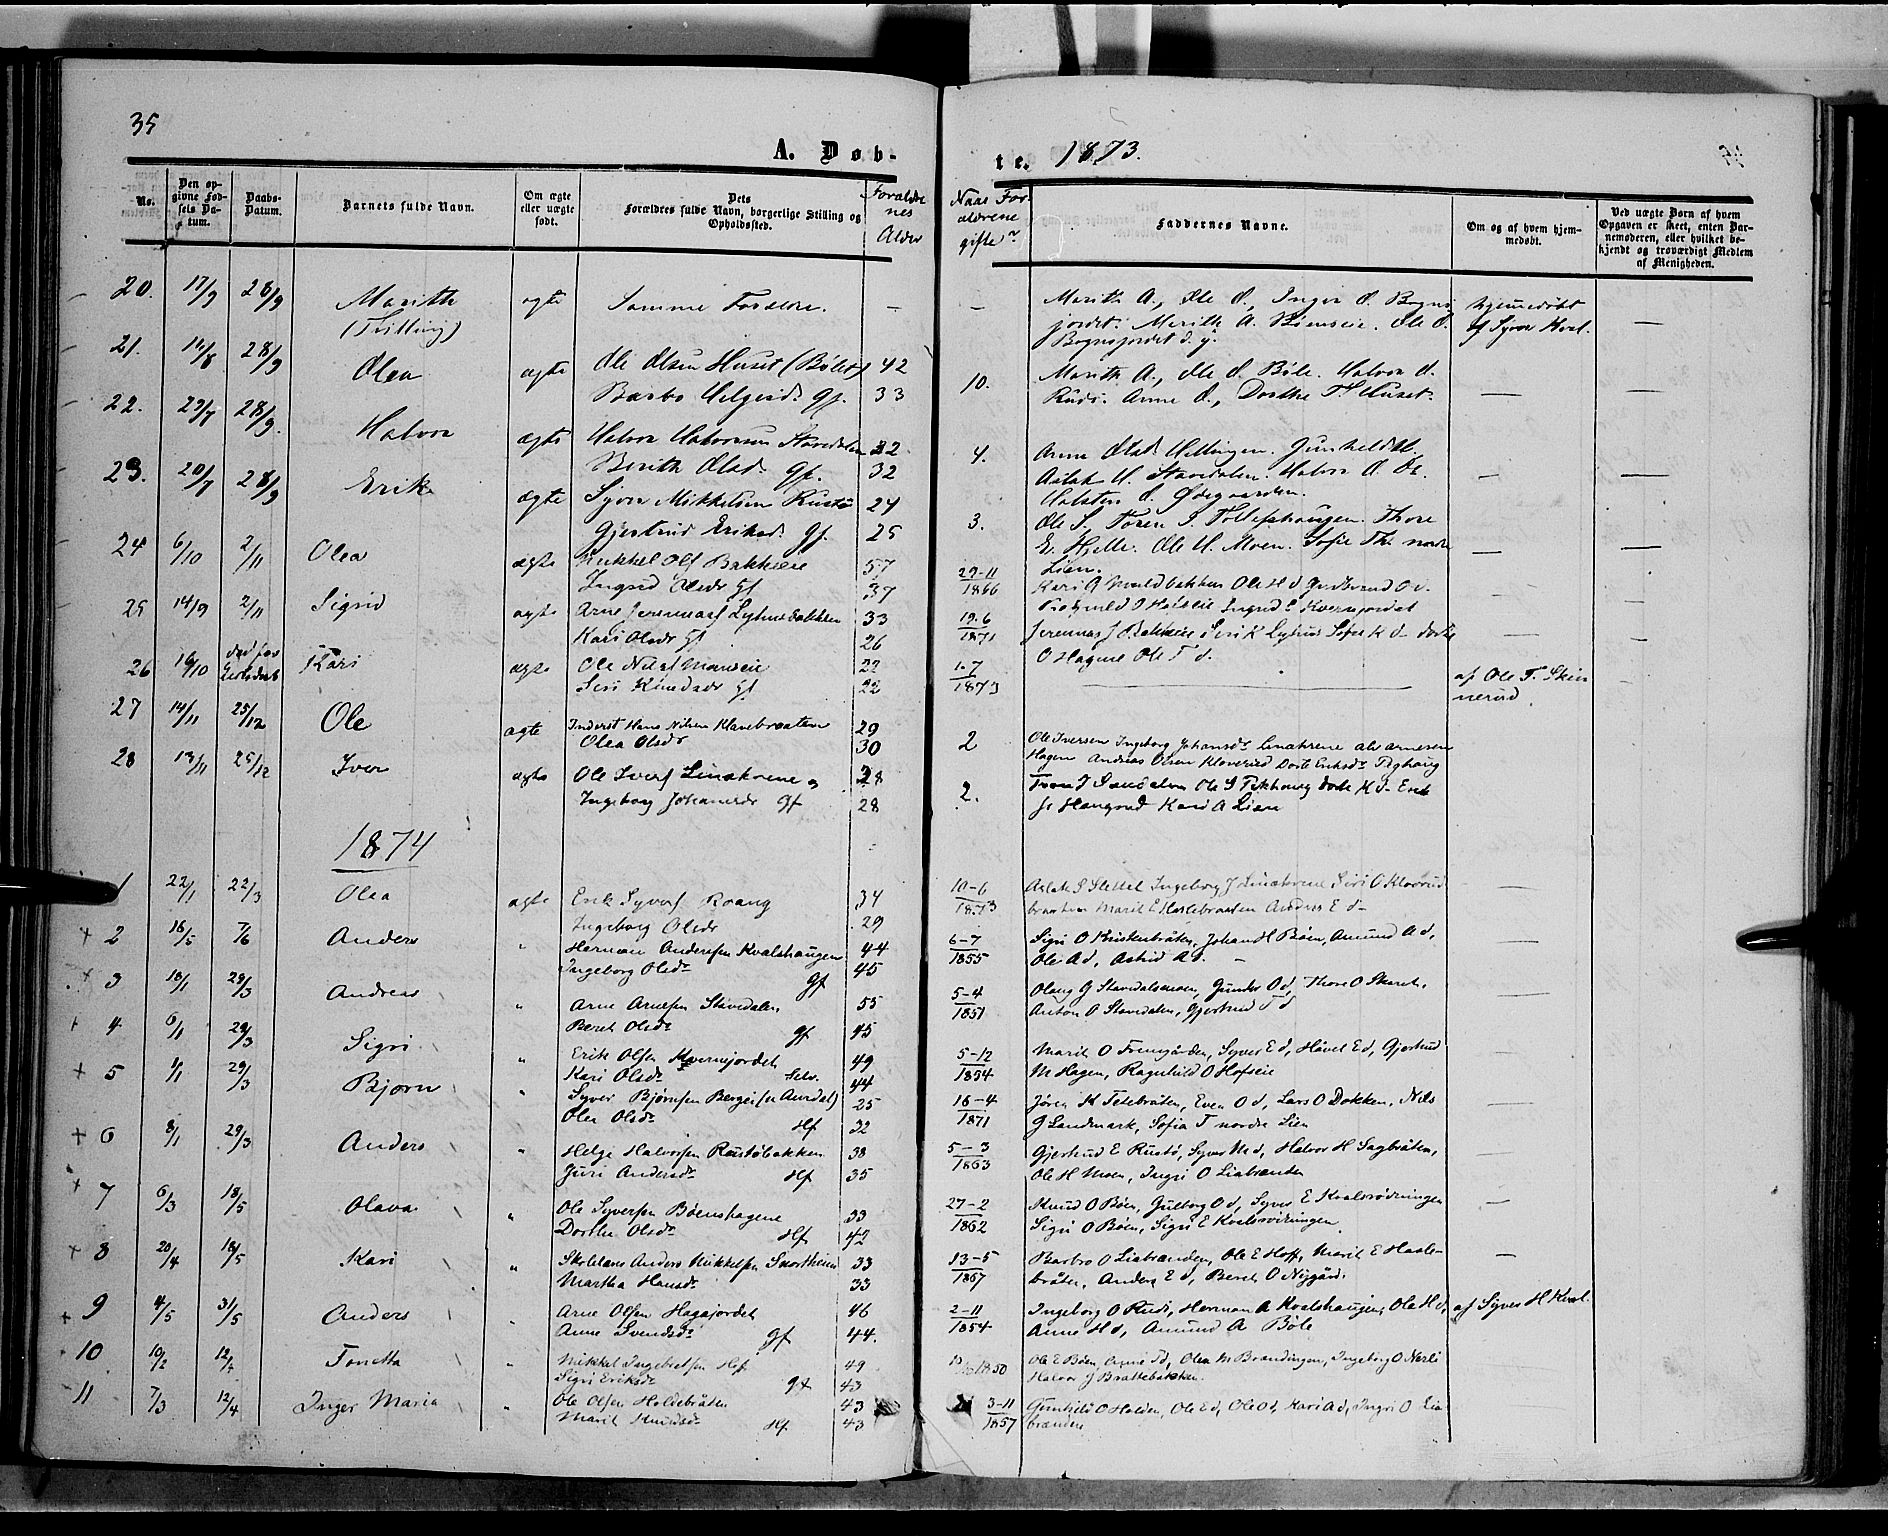 35
A. Døb-
te. 1873.
No.
Den op-
givne Fød-
sels Da-
tum.
Daabs-
Datum.
Barnets fulde Navn.
Om ægte
eller uægte
født.
Dets
Forældres fulde Navn, borgerlige Stilling og
Opholdssted.
Forældre
nes
Alder
Naar For
ældrene
gifte
Faddernes Navne.
Om og af hvem hjem-
medøbt.
Ved uægte Børn af hvem
Opgaven er skeet, enten Bar-
nemoderen, eller hvilket be-
kjendt og troværdigt Medlem
af Menigheden.
20. 17/9 28/9 Marithe ægte Samme Forældre. — —
(Tvilling)
Marith A., Ole O., Inger O. Bogns
jordet. Marith A. Ole O.
Bognsjordet d. y.
hjemmedøbt
af Syver Kval.
21. 28/9 Olea ægte Ole Olsen Huset (Bölet) 42
Barbo Helgesd. Gf. 33
10. Marith A., Ole O. Böle. Halvor O.
Rude. Anne O., Dorthe T. Huset.
22. 28/9. Halvor ægte Halvor Halvorsen Stavedalen 32
Berith Olsd. Gf. 32
4. Anne Olsd. Gunhild H.
Aslak H. Stavedalen. Halvor O. Ole
Halsten O. Ødegaarden.
23. 20/7 28/9 Erik ægte Syver Mikkelsen Rustø 24
Gjertrud Eriksd. Gf. 25
3. Ole S. Toren S. Tollefshaugen. Thore
E. Hjelle. Ole H. Moen. Sofie Th. nordre
Lien.
24 6/10 2/11 Olea ægte Mikkel Ols Bakkeie 57
Ingrid Olsdr Gf 37
29-11
1866
Kari G Ole H d Gudbrand O d.
Ragnhild O Hofseie Ingrid E Kvernjordet
25 14/9 2/11 Sigrid ægte Arne Jeremias 33
Kari Olsdr Gf 26
19.6
1871
Jeremias J Bakkeie Siri K Sofie K d Dorte
O Hagene Ole T d.
26 16/10 Kari ægte Ole Nils 22
Siri Knudsdr Gf 22
1-7
1873
af Ole T. Skin
nerud
27 14/11 25/12 Ole ægte Inderst Hans Nilsen Klevebraaten 29
Olea Olsdr 30
2 Ole Iversen Ingeborg Johansdr
Hagen Andreas Olsen Kloverud Dorte Eriksdr
28 13/11 25/12 Iver ægte Ole Ivers Linakrene og 28
Ingeborg Johannesdr Gf 28
2. Ole S Dorte K d. Erik
Kari A Lien
1874
1 22/1 22/3 Olea ægte Erik Syvers Roang 34
Ingeborg Olsdr 29
10-6
1873
Aslak S Slettet Ingeborg J Linakrene Siri O
Marit E Haslebraaten Anders E d-
+ 2 16/5 7/6 Anders " Herman Andersen Kvalshaugen 44
Ingeborg Olsdr Gf 45
6-7
1855
Sigri O Kristenbråten, Johan H Böen, Amund A d,
Ole A d, Astrid A d. —
3 18/1 29/3 Andreas " Arne Arnesen Stavedalen 55
Beret Olsdr gf 45
5-4
1851
Olaug G Stavedalsmoen, Gunder O d, Thore O Skaret,
Anton O Stavedalen, Gjertrud T d
+ 4 6/1 29/3 Sigri " Erik Olsen Kvernejordet 49
Kari Olsdr Selv. 44
5-12
1854
Marit O Fremgården, Syver E d, Hävel E d, Gjertrud
M Hagen, Ragnhild O Hofseie
+ 5 1/1 29/3 Bjørn " Syver Bjørnsen Berge (n Aurdal) 25
Olea Olsdr Hf 32
16-4
1871
Jøren K Tetebråten, Even O d, Lars O Dokken, Nils
G Landmark, Sofia T nordre Lien
+ 6 8/1 29/3 Anders " Helge Halvorsen Rustöbakken 38
Juri Andersdr Hf 35
5-3
1863
Gjertrud E Rustö, Syver M d, Halvor H Sagbråten,
Ole H Moen, Ingri O Liabrænden
+ 7 6/3 18/5 Olava " Ole Syversen Böenshagene 33
Dorthe Olsdr Hf 42
27-2
1862
Knud O Böen, Gulborg O d, Syver E Kvalsrödningen
Sigri O Böen, Sigri E Kvalsrödningen
+ 8 20/4 18/5 Kari " Skolelærer Anders Mikkelsen Snortheim 33
Martha Hansdr 33
13-5
1867
Barbro O Liabrænden, Ole E Hoff, Marit E Hasle-
bråten, Anders E d, Beret O Nygård.
+ 9 4/5 31/5 Anders " Arne Olsen Hagajordet 46
Anne Svendsdr gf 44.
2-11
1854
Ingeborg O Rudi, Herman A Kvalshaugen, Ole H d,
Anne H d, Amund A Böle
af Syver H Kval.
+ 10 10/2 Tonetta " Mikkel Ingebretsen Hef 49
Sigri Eriksdr gf 43
1850
Ole E Böen, Arne T d, Olea M Brændingen, Ingeborg O Nerli
Halvor J Brattebakken.
11 7/3 12/4 Inger Maria " Ole Olsen Holdebråten 43
Marit Knudsdr Hf. 43
3-11
1857
Gunhild O Holden, Ole E d, Ole O d, Kari A d, Ingri O Lia-
brændene